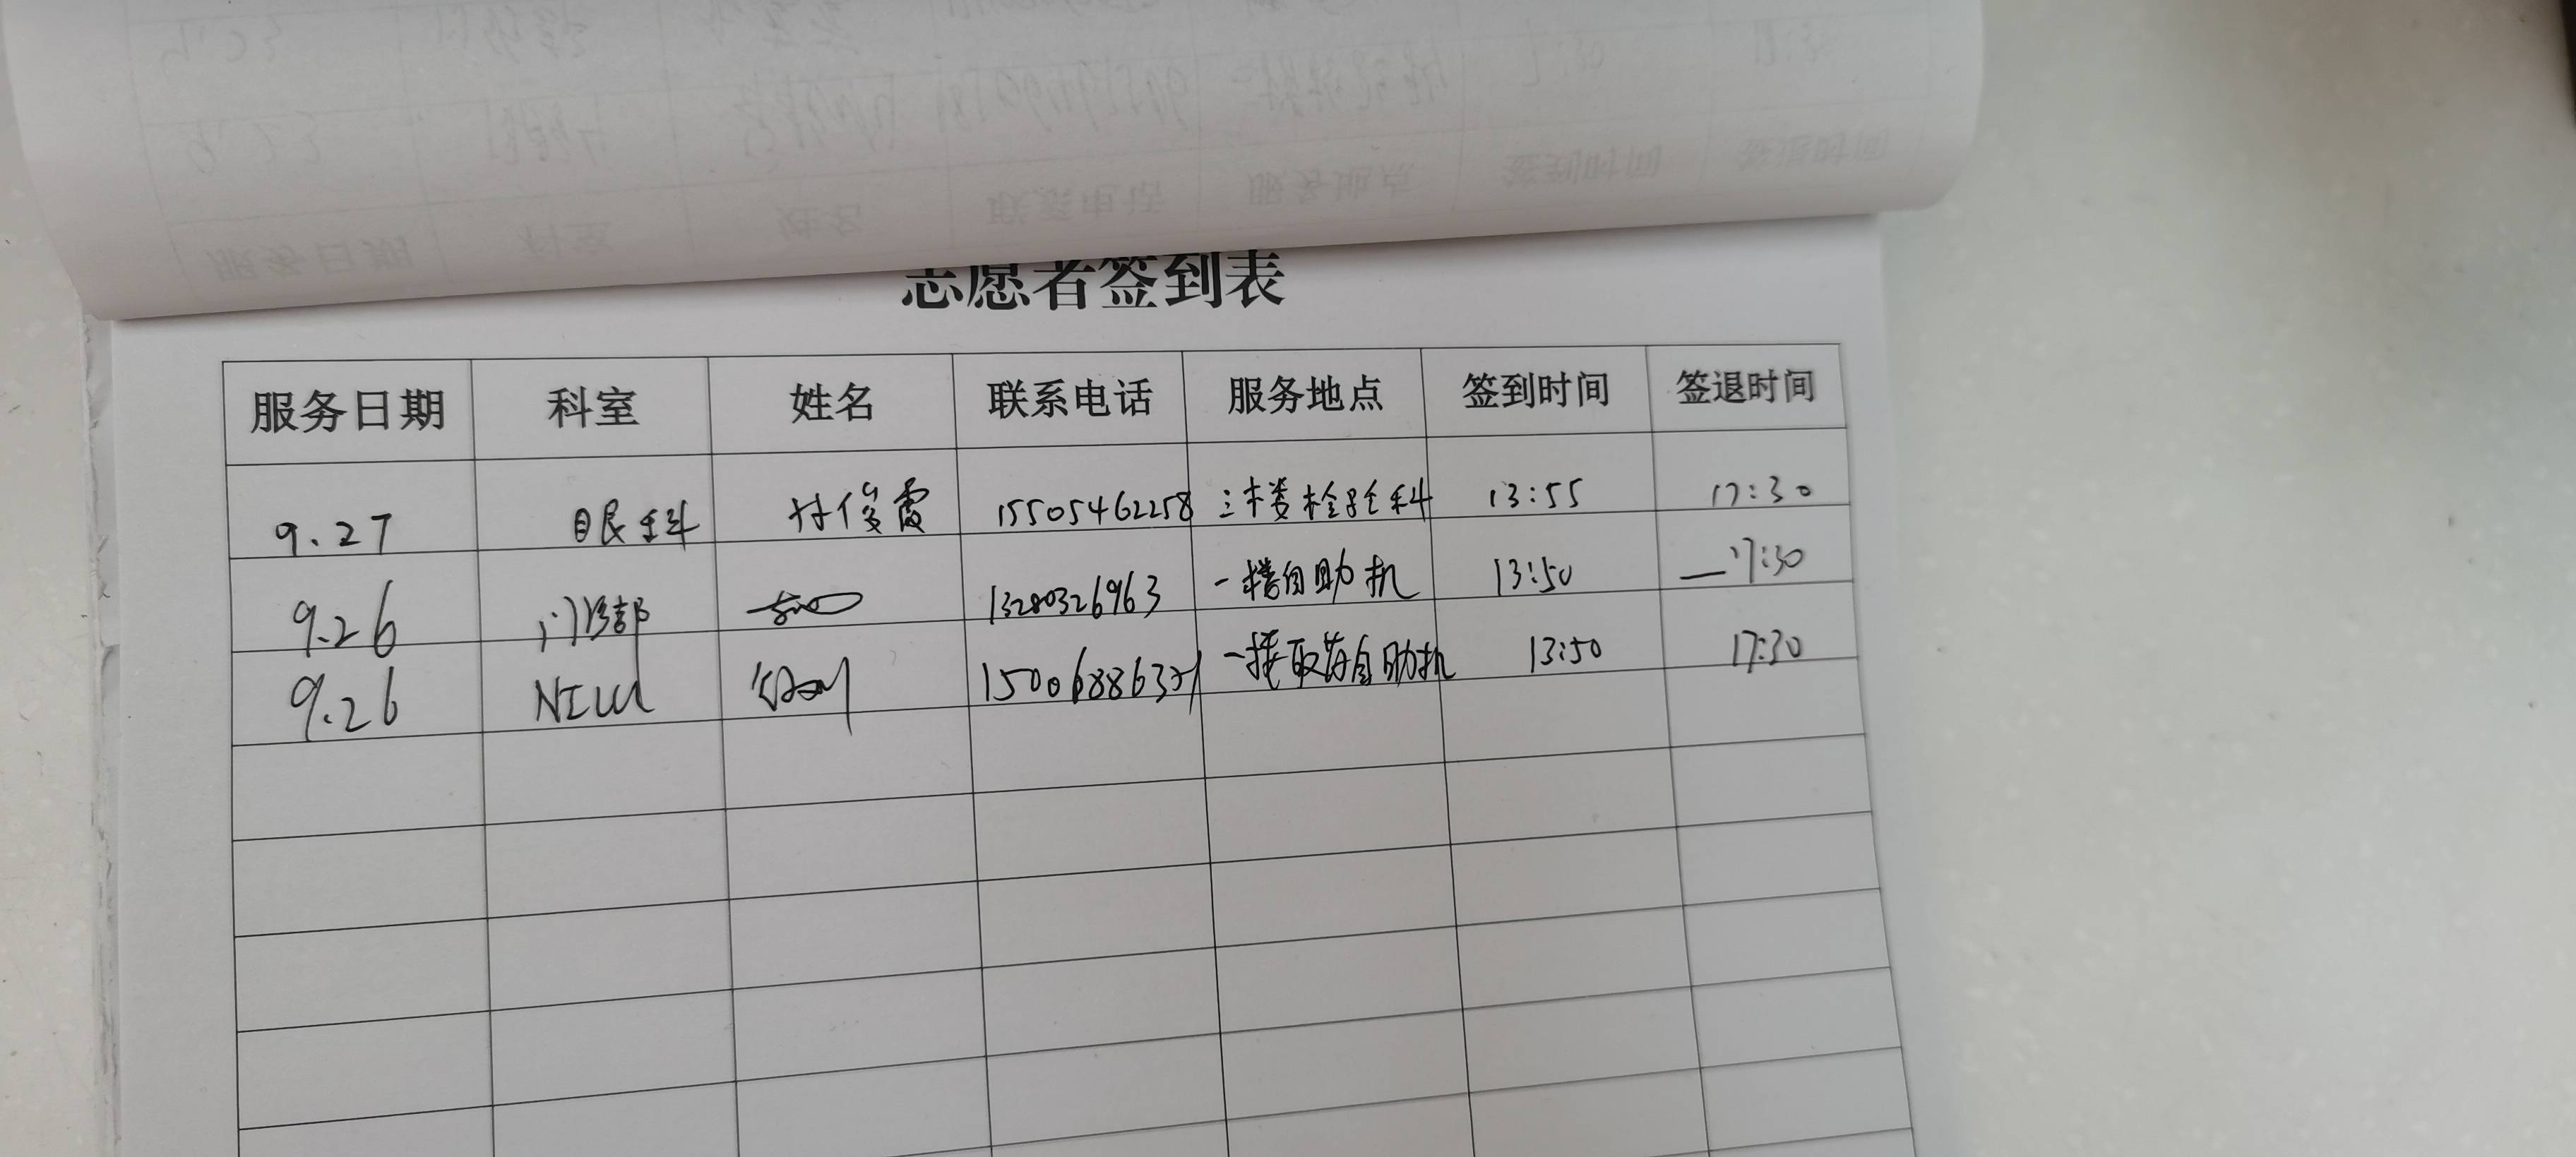 志愿者签到表
服务日期 科室 姓名 联系电话 服务地点 签到时间 签退时间
9.27 眼科 付俊霞 15505462258 三楼检验科 13:55 17:30
9.26 门诊部 13280326963 一楼自助机 13:50 17:30
9.26 NICU 一楼取药自助机 13:50 17:30